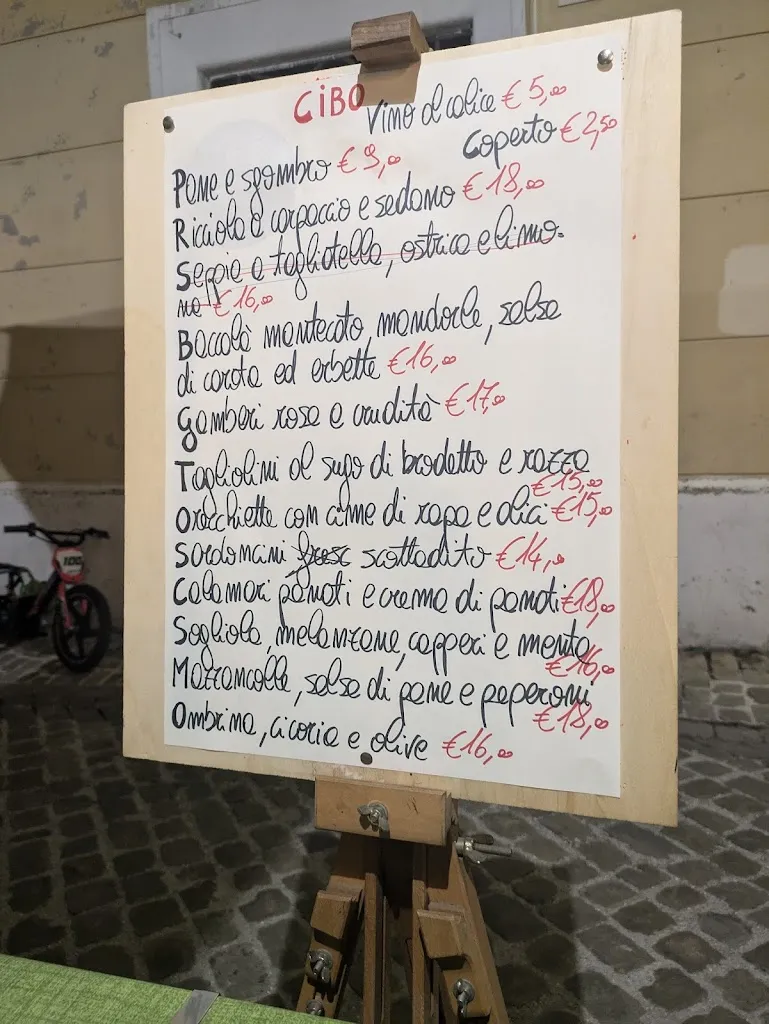 CIBO
Vino al calice € 5,00
Coperto € 2,50
Pane e sgombro € 9,00
Ricciola a carpaccio e sedano € 18,00
Seppia a tagliatella, ostrica e limo-
na € 16,00
Baccalà mantecato, mandorle, salsa
di carota ed erbette € 16,00
Gamberi rosa e crudità € 17,00
Tagliolini al sugo di brodetto e razza
€ 15,00
Orecchiette con cime di rapa e alici € 15,00
Sardoncini fresc scottadito € 14,00
Calamari panati e crema di panati € 18,00
Sogliola, melanzane, capperi e menta
€ 16,00
Mazzancolle, salsa di pane e peperoni
€ 18,00
Ombrina, cicoria e olive € 16,00
100